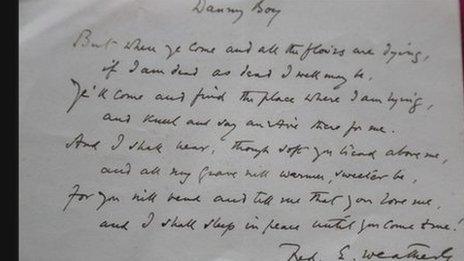 Danny Boy
But when ye come and all the flowers are dying,
if I am dead as dead I well may be,
Ye'll come and find the place where I am lying,
and kneel and say an Ave there for me.
And I shall hear, though soft you tread above me,
and all my grave will warmer, sweeter be,
For you will bend and tell me that you love me,
and I shall sleep in peace until you come to me!
Fred. E. Weatherly